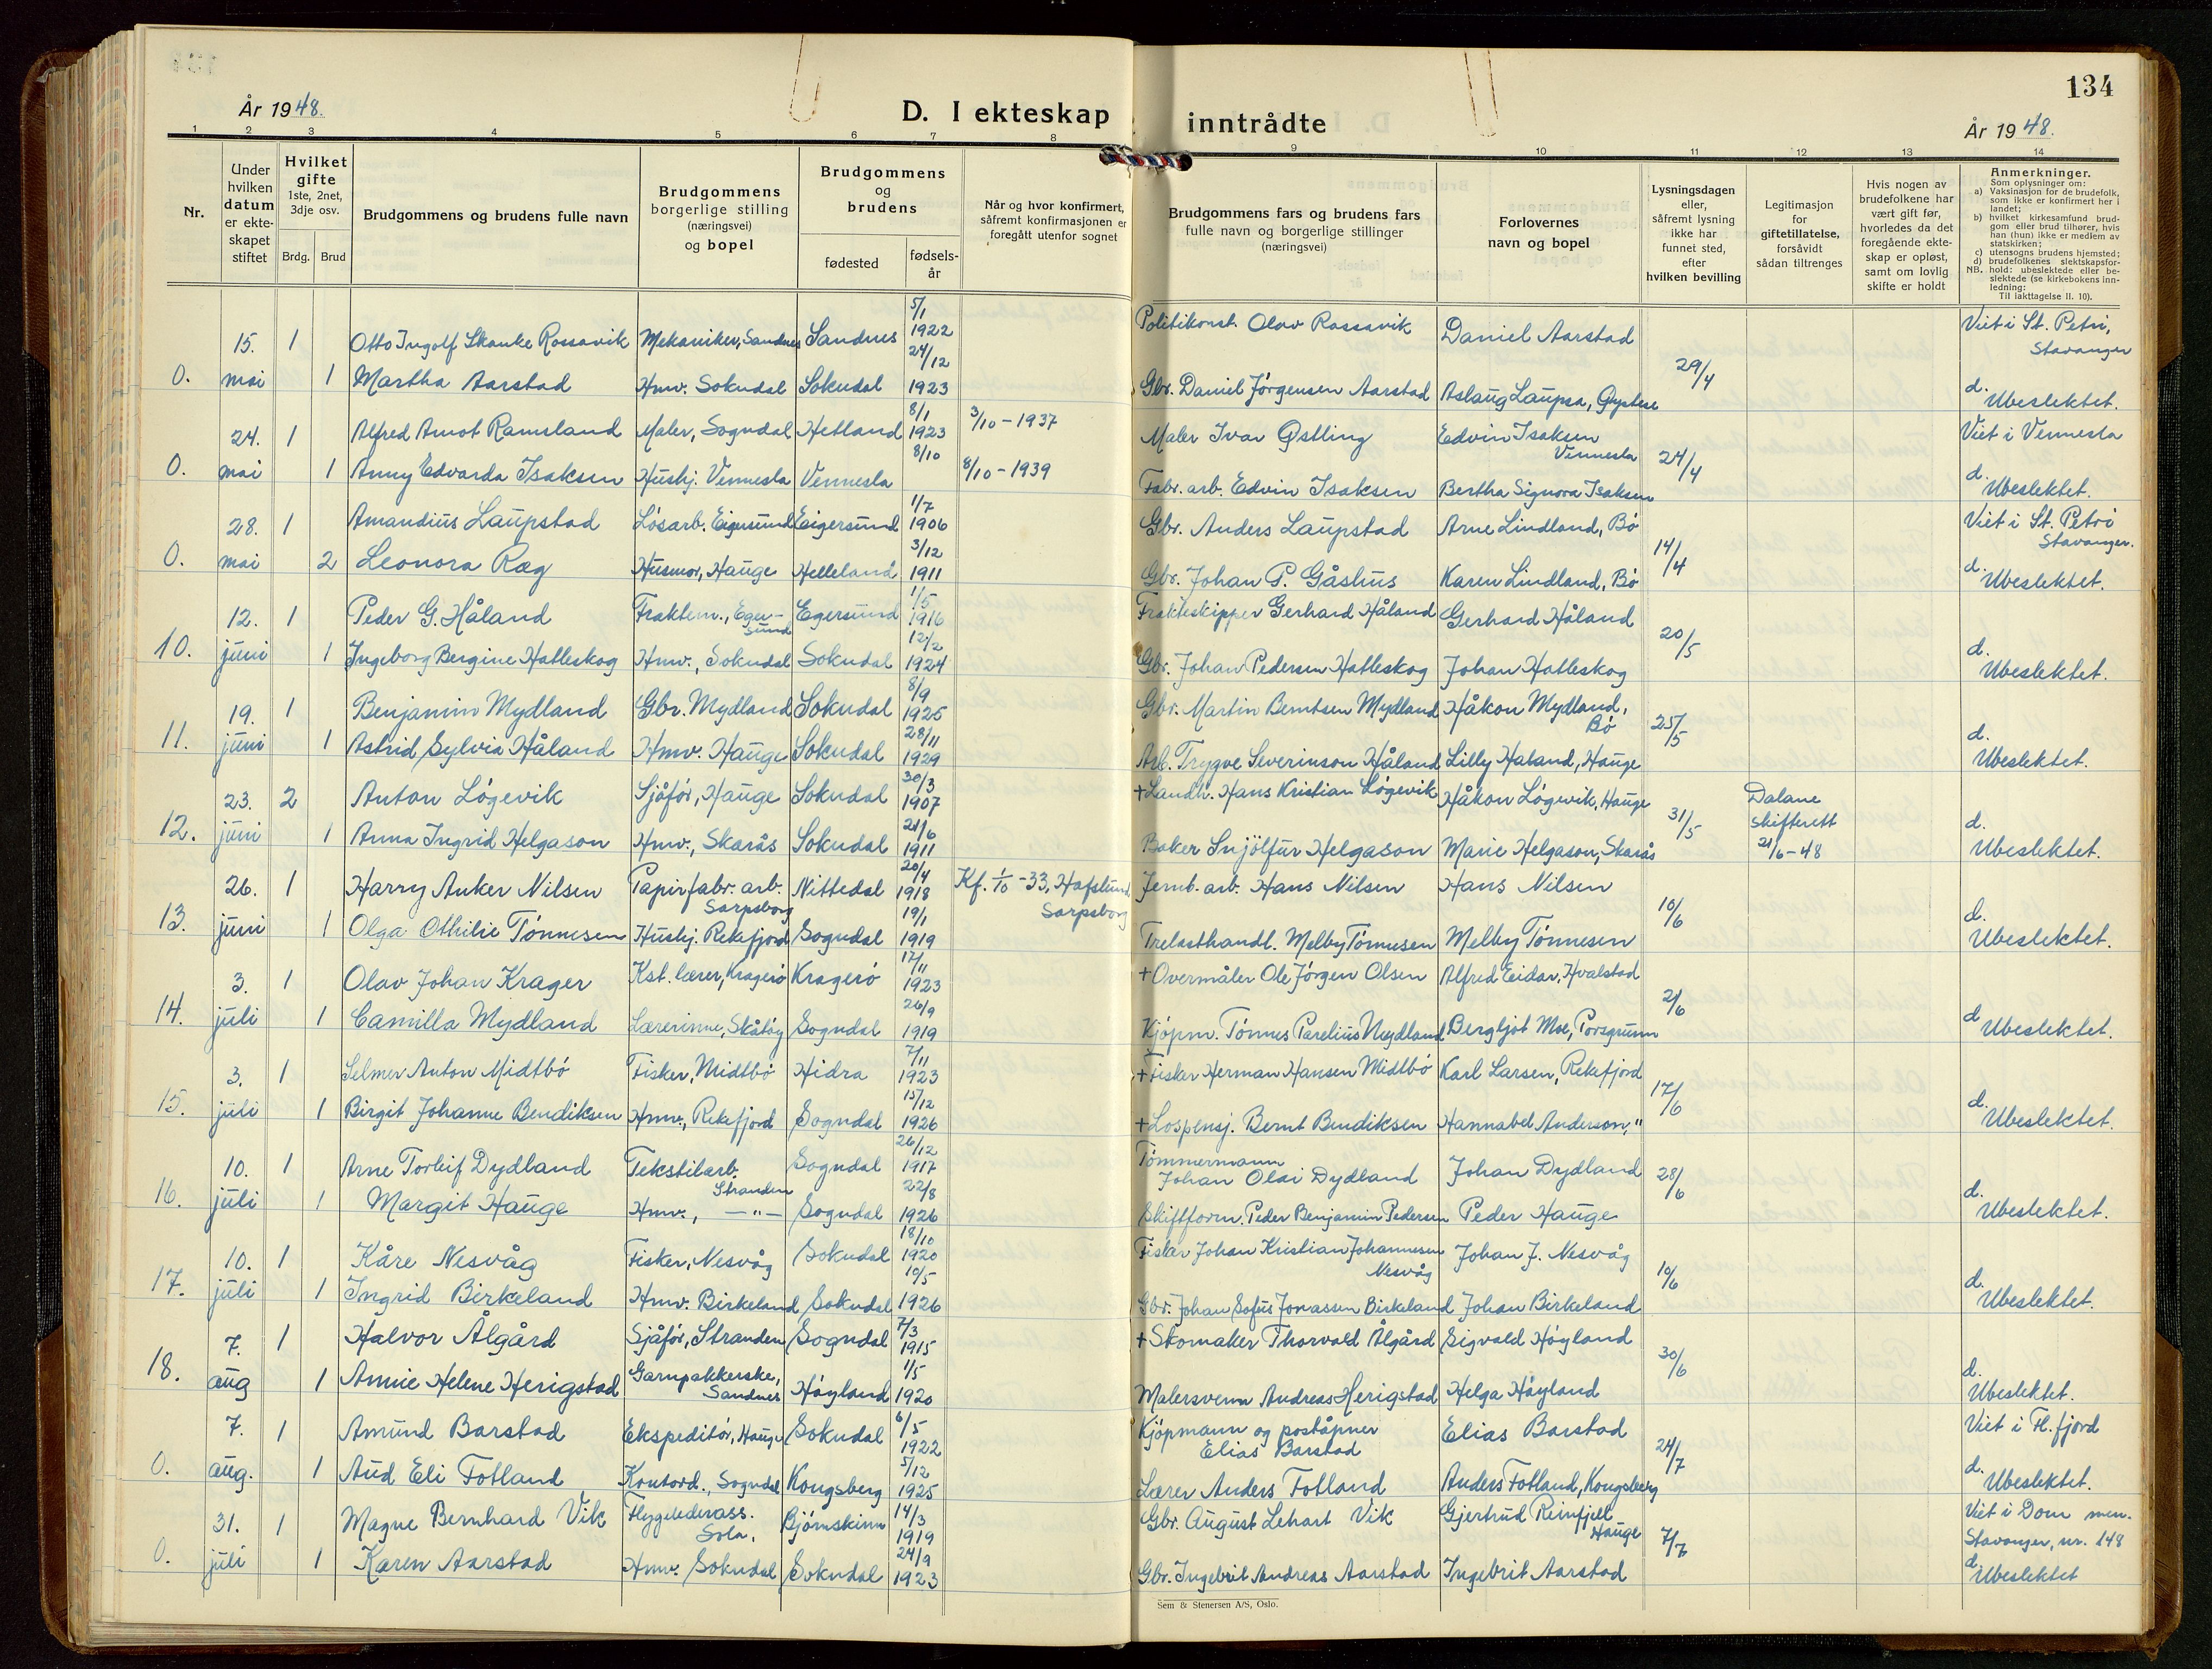 134
År 1948.
D. I ekteskap inntrådte
År 1948.
1 2 3 4 5 6 7 8 9 10 11 12 13 14
Nr.
Under hvilken datum er ekteskapet stiftet
Hvilket gifte 1ste, 2net, 3dje osv.
Brdg. Brud
Brudgommens og brudens fulle navn
Brudgommens borgerlige stilling (næringsvei) og bopel
Brudgommens og brudens
fødested
fødsels-år
Når og hvor konfirmert, såfremt konfirmasjonen er foregått utenfor sognet
Brudgommens fars og brudens fars fulle navn og borgerlige stillinger (næringsvei)
Forlovernes navn og bopel
Lysningsdagen eller, såfremt lysning ikke har funnet sted, efter hvilken bevilling
Legitimasjon for giftetillatelse, forsåvidt sådan tiltrenges
Hvis nogen av brudefolkene har vært gift før, hvorledes da det foregående ekteskap er opløst, samt om lovlig skifte er holdt
Anmerkninger.
Som oplysninger om:
a) Vaksinasjon for de brudefolk, som ikke er konfirmert her i landet;
b) hvilket kirkesamfund brudgom eller brud tilhører, hvis han (hun) ikke er medlem av statskirken;
c) utensogns brudens hjemsted;
d) brudefolkenes slektskapsforhold: ubeslektede eller beslektede (se kirkebokens innledning:
NB.
Til iakttagelse II. 10).
15. 1 Otto Ingolf Skanke Rossavik Mekaniker, Sandnes Sandnes 5/1 1922 Politikonst. Olav Rossavik Daniel Aarstad Viet i St. Petri, Stavanger
0. mai 1 Martha Aarstad Hmv. Sokndal Sokndal 24/12 1923 Gbr. Daniel Jørgensen Aarstad Aslaug Laupsa, 29/4 d. Ubeslektet.
24. 1 Alfred Arnot Ramsland Maler, Sogndal Hetland 8/1 1923 3/10 - 1937 Maler Ivar Østling Edvin Isaksen Vennesla Viet i Vennesla
0. mai 1 Anny Edvarda Isaksen Hushj. Vennesla Vennesla 8/10 8/10 - 1939 Fabr. arb. Edvin Isaksen Bertha Signora Isaksen 24/4 d. Ubeslektet.
28. 1 Amandius Laupstad Løsarb. Eigersund Eigersund 1/7 1906 Gbr. Anders Laupstad Arne Lindland, Bø Viet i St. Petri Stavanger.
0. mai 2 Leonora Ræg Husmor, Hauge Helleland 3/12 1911 Gbr. Johan P. Gåshus Karen Lindland, Bø 14/4 d. Ubeslektet.
12. 1 Peder G. Håland Fraktem., Egersund Egersund 1/5 1916 Frakteskipper Gerhard Håland Gerhard Håland
10. juni 1 Ingeborg Bergine Hatleskog Hmv., Sokndal Sokndal 12/2 1924 Gbr. Johan Pedersen Hatleskog Johan Hatleskog 20/5 d. Ubeslektet.
19. 1 Benjamin Mydland Gbr. Mydland Sokndal 8/9 1925 Gbr. Martin Berntsen Mydland Håkon Mydland, Bø
11. juni 1 Astrid Sylvia Håland Hmv. Hauge Sokndal 28/11 1929 Arb. Trygve Severinson Håland Lilly Haland, Hauge 25/5 d. Ubeslektet.
23. 2 Anton Løgevik Sjåfør, Hauge Sokndal 30/3 1907 + Landh. Hans Kristian Løgevik Håkon Løgevik, Hauge Dalane skifterett 21/6-48
12. juni 1 Anna Ingrid Helgason Hmv., Skarås Sokndal 21/6 1911 Baker Snjölfur Helgason Marie Helgason, Skarås 31/5 d. Ubeslektet.
26. 1 Harry Anker Nilsen Papirfabr. arb. Sarpsborg Nittedal 20/4 1918 Kf. 1/10 -33, Hafslund Sarpsborg Jernb. arb. Hans Nilsen Hans Nilsen
13. juni 1 Olga Othilie Tønnesen Hushj. Rekefjord Sogndal 19/1 1919 Trelasthandl. Melby Tønnesen Melby Tønnesen 10/6 d. Ubeslektet.
3. 1 Olav Johan Krager Kst. lærer, Kragerø Kragerø 17/11 1923 + Overmåler Ole Jørgen Olsen Alfred Eidar, Hvalstad
14. juli 1 Camilla Mydland Lærerinne, Skåtøy Sogndal 26/9 1919 Kjøpm. Tønnes Parelius Mydland Bergljot Moe, Porsgrunn 2/6 d. Ubeslektet.
3. 1 Selmer Anton Midtbø Fisker, Midtbø Hidra 7/11 1923 + Fisker Herman Hansen Midtbø Karl Larsen, Rekefjord
15. juli 1 Birgit Johanne Bendiksen Hmv., Rekefjord Sogndal 15/12 1926 + Lospensj. Bernt Bendiksen Hannabel Anderson, " 17/6 d. Ubeslektet.
10. 1 Arne Torleif Dydland Tekstilarb. Stranden Sogndal 26/12 1917 Tømmermann Johan Olai Dydland Johan Dydland
16. juli 1 Margit Hauge Hmv., —"— Sogndal 22/8 1926 Skiftform. Peder Benjamin Pedersen Peder Hauge 28/6 d. Ubeslektet.
10. 1 Kåre Nesvåg Fisker, Nesvåg Sokndal 18/10 1920 Fisker Johan Kristian Johannesen Nesvåg Johan J. Nesvåg
17. juli 1 Ingrid Birkeland Hmv. Birkeland Sokndal 10/5 1926 Gbr. Johan Sofus Jonassen Birkeland Johan Birkeland 10/6 d. Ubeslektet.
7. 1 Halvor Ålgård Sjåfør, Stranden Sogndal 7/3 1915 + Skomaker Thorvald Ålgård Sigvald Høyland
18. aug 1 Annie Helene Herigstad Garnpakkerske, Sandnes Høyland 1/5 1920 Malersvenn Andreas Herigstad Helga Høyland 30/6 d. Ubeslektet.
7. 1 Amund Barstad Ekspeditør, Hauge Sokndal 6/5 1922 Kjøpmann og poståpner Elias Barstad Elias Barstad Viet i Fl. fjord
0. aug. 1 Aud Eli Fotland Kontord., Sogndal Kongsberg 5/12 1925 Lærer Anders Fotland Anders Fotland, Kongsberg 24/7 d. Ubeslektet.
31. 1 Magne Bernhard Vik Flygelederass. Sola, Bjørnskinn 14/3 1919 Gbr. August Lehart Vik Gjertrud Reinfjell Hauge Viet i Dom men. Stavanger, nr. 148
0. juli 1 Karen Aarstad Hmv. Sokndal Sokndal 24/9 1923 Gbr. Ingebrit Andreas Aarstad Ingebrit Aarstad 7/7 d. Ubeslektet
Sem & Stenersen A/S, Oslo.